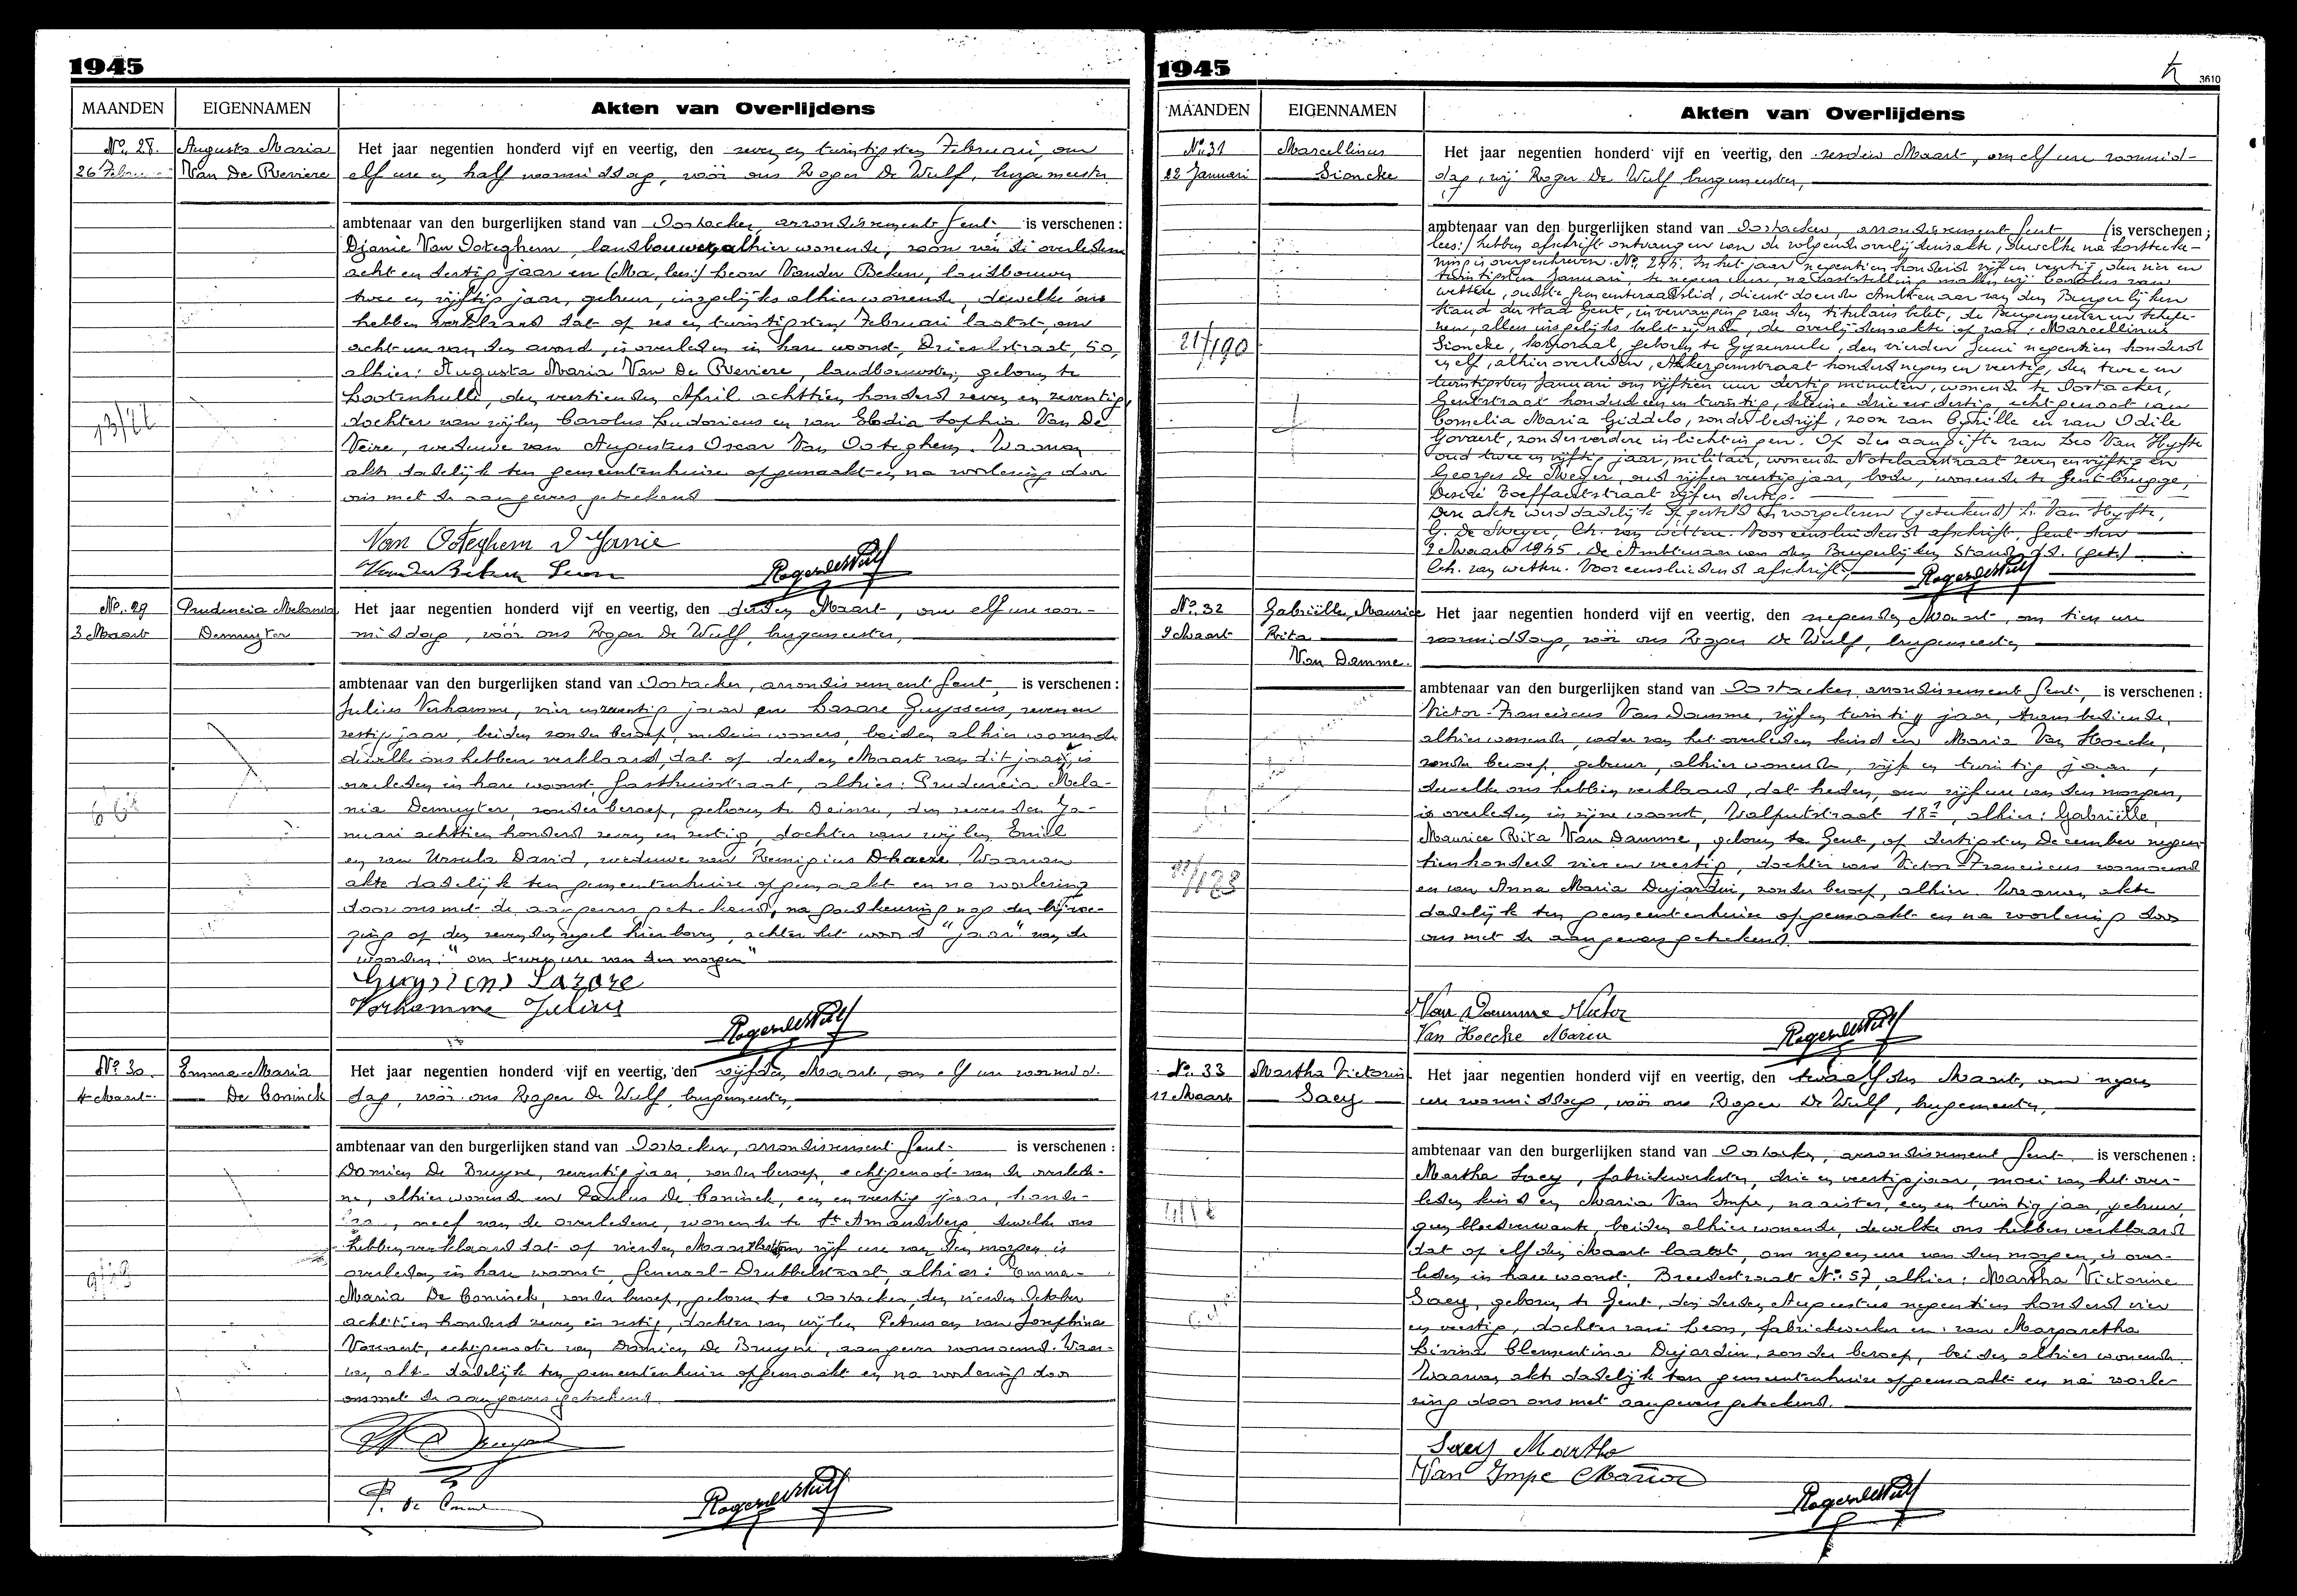 1945
MAANDEN EIGENNAMEN Akten van Overlijdens
No. 28. Augusta Maria Het jaar negentien honderd vijf en veertig, den zeven en twintigsten Februari, om
26 Febru Van De Reviere elf ure en half voormiddag, vóór ons Roger De Wulf, burgemeester
ambtenaar van den burgerlijken stand van Oostacker, arrondissement Gent, is verschenen:
Djanie Van Ooteghem, landbouwer, alhier wonende, zoon van de overledene
acht en dertig jaar en (Ma, lees:) Leon Vander Beken, landbouwer
twee en vijftig jaar, gebuur, insgelijks alhier wonende, dewelke ons
hebben verklaard dat op zes en twintigsten Februari laatst, om
acht ure van den avond, is overleden in hare woonst, Drieselstraat, 50,
alhier: Augusta Maria Van De Reviere, landbouwster, geboren te
Lootenhulle, den veertienden April achttien honderd zeven en zeventig,
dochter van wijlen Carolus Ludovicus en van Elodia Sophia Van De
Veire, weduwe van Augustus Oscar Van Ooteghem. Waarvan
akte dadelijk ten gemeentenhuize opgemaakt en na voorlezing door
ons met de aangevers geteekend
13/22
Van Ooteghem Djanie
Vander Beken Leon RogerdeWulf
No. 29 Prudencia Melania Het jaar negentien honderd vijf en veertig, den derden Maart, om elf ure voor-
3 Maart Demuyter middag, vóór ons Roger De Wulf, burgemeester,
ambtenaar van den burgerlijken stand van Oostacker, arrondissement Gent, is verschenen:
Julius Verhamme, vier en zeventig jaar en Lazare Guyssens, zeven en
zestig jaar, beiden zonder beroep, medeinwoners, beiden alhier wonende
dewelke ons hebben verklaard, dat op derden Maart van dit jaar, is
overleden in hare woonst, Gasthuisstraat, alhier: Prudencia Mela-
nia Demuyter, zonder beroep, geboren te Deinze, den zevenden Ja-
nuari achttien honderd zeven en zestig, dochter van wijlen Emiel
en van Ursula David, weduwe van Remigius Dhaeze. Waarvan
akte dadelijk ten gemeentenhuize opgemaakt en na voorlezing
door ons met de aangevers geteekend, na goedkeuring nog der bijvoe-
ging op den zevenden regel hierboven, achter het woord "jaar" van de
woorden: "om twee ure van den morgen"
Guyssens Lazare
Verhamme Julius
RogerdeWulf
No. 30. Emma-Maria Het jaar negentien honderd vijf en veertig, den vijfden Maart, om elf ure voormid-
4 Maart De Coninck dag, vóór ons Roger De Wulf, burgemeester,
ambtenaar van den burgerlijken stand van Oostacker, arrondissement Gent, is verschenen:
Domien De Bruyne, zeventig jaar, zonder beroep, echtgenoot van de overlede-
ne, alhier wonende en Paulus De Coninck, een en veertig jaar, hande-
neef van de overledene, wonende te St Amandsberg, dewelke ons
hebben verklaard dat op vierden Maart om vijf ure van den morgen is
overleden in hare woonst, Generaal-Drubbelstraat, alhier: Emma-
Maria De Coninck, zonder beroep, geboren te Oostacker, den vierden October
achttien honderd zeven en zestig, dochter van wijlen Petrus en van Josephina
echtgenoote van Domien De Bruyne, aangever voornoemd. Waar-
van akte dadelijk ten gemeentenhuize opgemaakt en na voorlezing door
ons met de aangevers geteekend.
P. De Coninck RogerdeWulf
1945
3610
MAANDEN EIGENNAMEN Akten van Overlijdens
No. 31 Marcellinus Het jaar negentien honderd vijf en veertig, den zesden Maart, om elf ure voormid-
22 Januari Sioncke dag, wij Roger De Wulf burgemeester,
ambtenaar van den burgerlijken stand van Oostacker, arrondissement Gent (is verschenen;
lees:) hebben afschrift ontvangen van de volgende overlijdensakte, dewelke na kortteeke-
ning is overgeschreven. No. 244. In het jaar negentien honderd vijf en veertig, den vier en
twintigsten Januari, te negen ure, na vaststelling maken wij Carolus van
wettere, oudste gemeenteraadslid, dienstdoende Ambtenaar van den Burgerlijken
Stand der Stad Gent, in vervanging van den titularis belet, de Burgemeester en Schepe-
nen, allen insgelijks belet zijnde, de overlijdensakte op van: Marcellinus
Sioncke, korporaal, geboren te Gyzenzele, den vierden Juni negentien honderd
en elf, alhier overleden, Akkergemstraat honderd negen en veertig, den twee en
twintigsten Januari om vijftien uur dertig minuten, wonende te Oostacker,
Gentstraat honderd een en twintig, echtgenoot van
Cornelia Maria Giddelo, zonder bedrijf, zoon van Cyrille en van Odile
Govaert, zonder verdere inlichtingen. Op de aangifte van Leo Van Hyfte
oud twee en vijftig jaar, militair, wonende Notelaarstraat zeven en vijftig en
Georges De Sweyer, oud vijf en veertig jaar, bode, wonende te Gentbrugge,
Désiré Toeffaertstraat vijf en dertig.
Deze akte werd dadelijk opgesteld en voorgelezen (geteekend) L. Van Hyfte,
G. De Sweyer, Ch. van wettere. Voor eensluidend afschrift. Gent den
2 Maart 1945. De Ambtenaar van den Burgerlijken Stand, d.d. (get.)
Ch. van wettere. Voor eensluidend afschrift, RogerdeWulf
21/190
No. 32 Gabriëlle, Maurice Het jaar negentien honderd vijf en veertig, den negenden Maart, om tien ure
9 Maart Rita voormiddag, vóór ons Roger De Wulf, burgemeester
Van Damme.
ambtenaar van den burgerlijken stand van Oostacker, arrondissement Gent, is verschenen:
Victor-Franciscus Van Damme, vijf en twintig jaar, trambediende,
alhier wonende, vader van het overleden kind en Maria Van Hoecke,
zonder beroep, gebuur, alhier wonende, vijf en twintig jaar,
dewelke ons hebben verklaard, dat heden, om vijf ure van den morgen,
is overleden in zijne woonst, Walputstraat 18, alhier: Gabriëlle,
Maurice Rita Van Damme, geboren te Gent, op dertigsten December negen-
tien honderd vier en veertig, dochter van Victor-Franciscus voornoemd
en van Anna Maria Dujardin, zonder beroep, alhier. Waarvan akte
dadelijk ten gemeentenhuize opgemaakt en na voorlezing door
ons met de aangevers geteekend.
Van Damme Victor
Van Hoecke Maria RogerdeWulf
No. 33 Martha Victorine Het jaar negentien honderd vijf en veertig, den twaalfden Maart, om negen
11 Maart Saey ure voormiddag, vóór ons Roger De Wulf, burgemeester,
ambtenaar van den burgerlijken stand van Oostacker, arrondissement Gent, is verschenen:
Martha Saey, fabriekwerkster, drie en veertig jaar, moei van het over-
leden kind en Maria Van Impe, naaister, een en twintig jaar, gebuur,
geen bloedverwante, beiden alhier wonende, dewelke ons hebben verklaard
dat op elfden Maart laatst, om negen ure van den morgen, is over-
leden in hare woonst, Breedestraat No. 57, alhier: Martha Victorine
Saey, geboren te Gent, den derden Augustus negentien honderd vier
en veertig, dochter van Leon, fabriekwerker en van Margaretha
Livina Clementina Dujardin, zonder beroep, beiden alhier wonende.
Waarvan akte dadelijk ten gemeentenhuize opgemaakt en na voorle-
zing door ons met aangevers geteekend.
Saey Martha
Van Impe Maria
RogerdeWulf